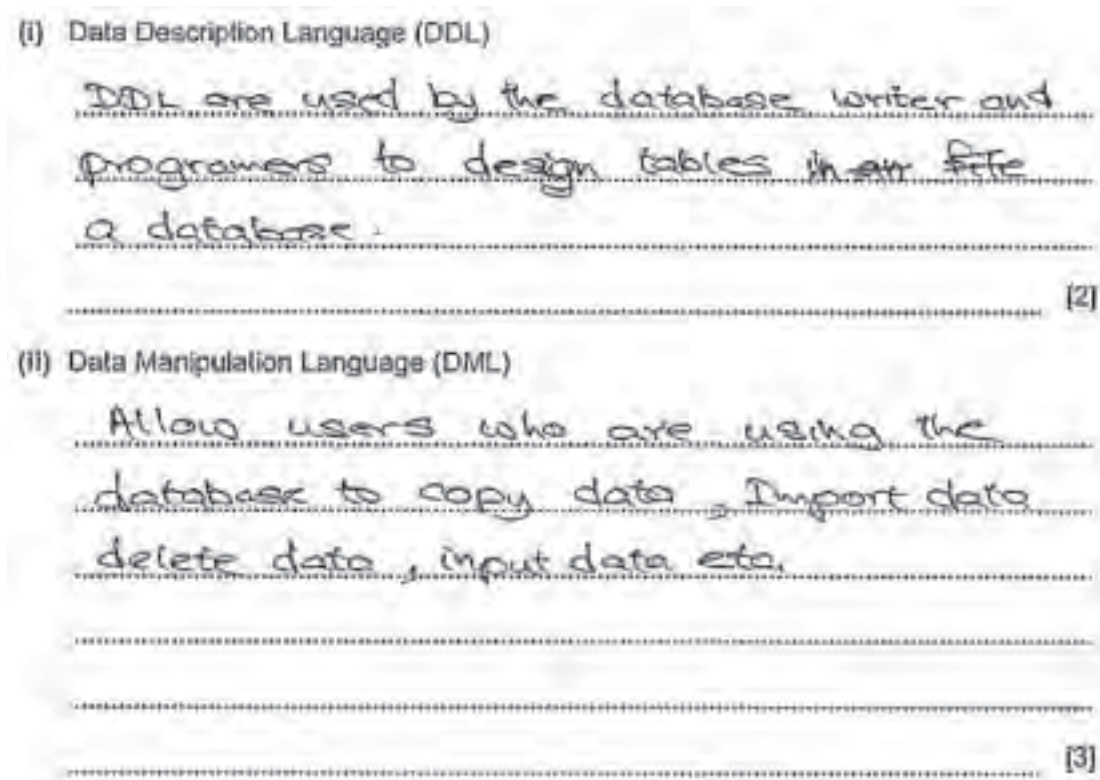 (i) Data Description Language (DDL)
DDL are used by the database writer and
programers to design tables in an file
a database.
[2]
(ii) Data Manipulation Language (DML)
Allow users who are using the
database to copy data, Import data
delete data, input data etc.
[3]